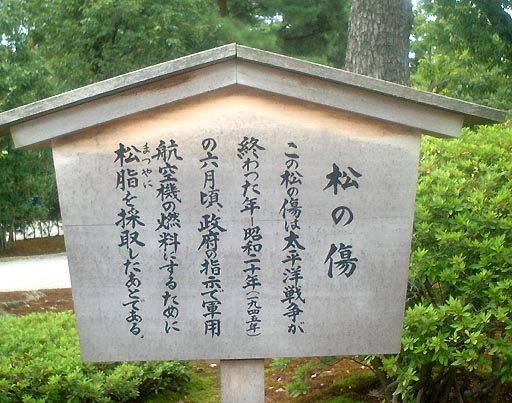 松の傷
この松の傷は太平洋戦争が
終わった年―昭和二十年(一九四五年)
の六月頃、政府の指示で軍用
航空機の燃料にするために
まつやに
松脂を採取したあとである。